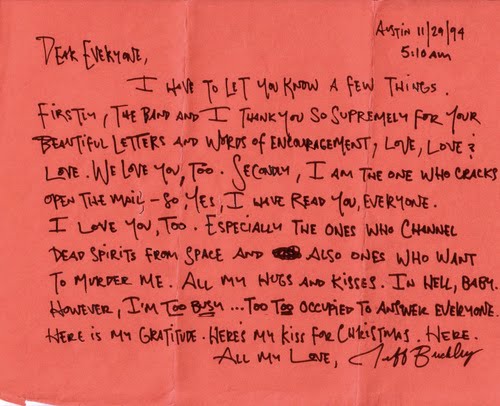 Austin 11/29/94
5:10am
Dear Everyone,
I have to let you know a few things.
Firstly, the band and I thank you so supremely for your
beautiful letters and words of encouragement, love, love &
love. We love you, too. Secondly, I am the one who cracks
open the mail, - so, yes, I have read you, everyone.
I love you, too. Especially the ones who channel
dead spirits from space and also ones who want
to murder me. All my hugs and kisses. In hell, baby.
However, I'm too busy ... too too occupied to answer everyone.
Here is my gratitude. Here's my kiss for Christmas. Here.
All my love, Jeff Buckley